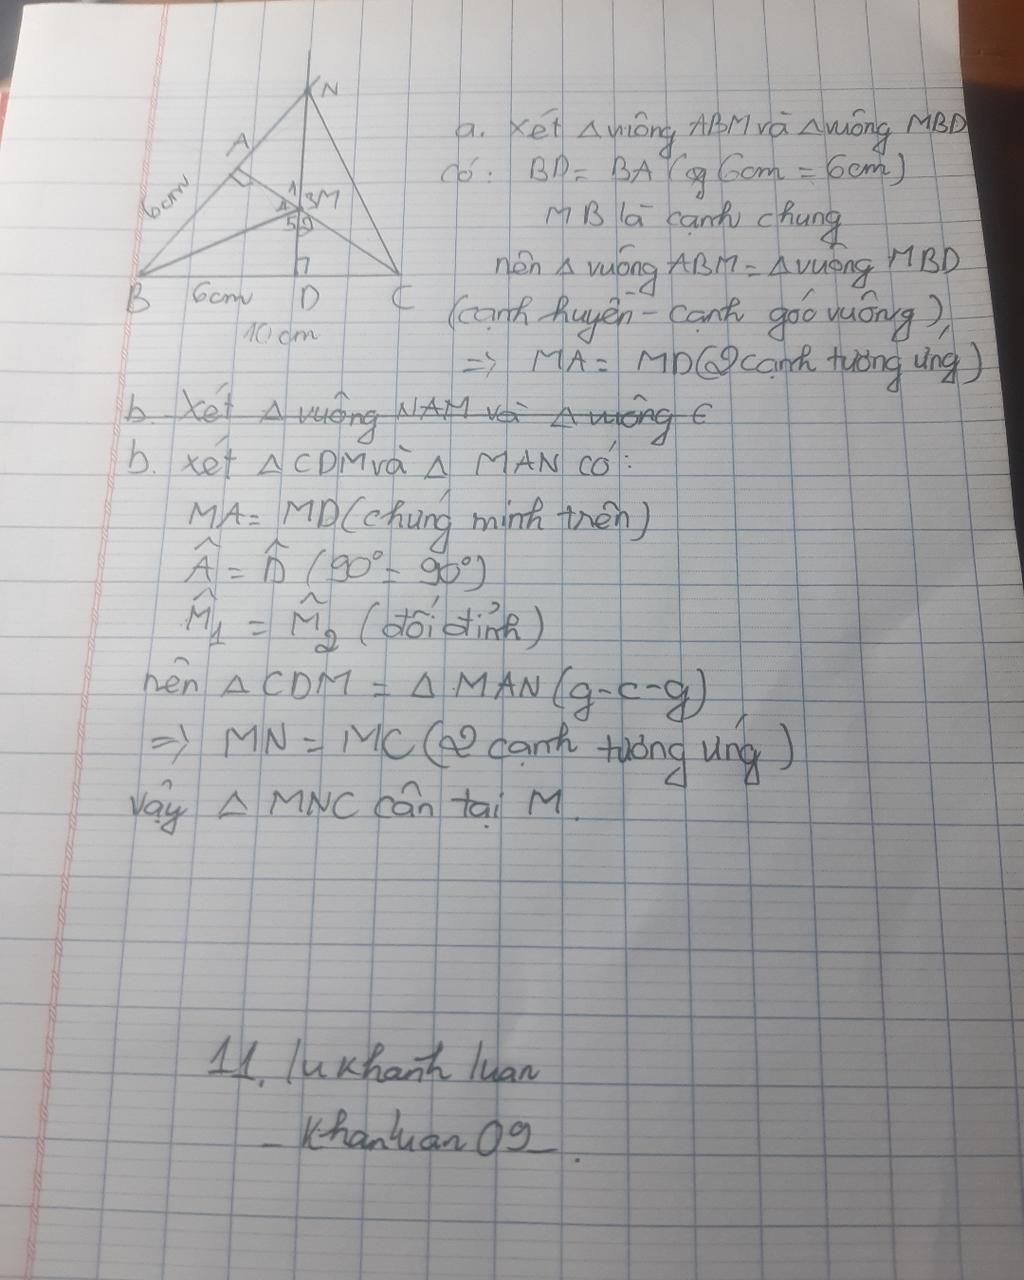 N
A
6cm
1
3M
4
5 2
B 6cm D C
10 cm
a. Xét Δ vuông ABM và Δ vuông MBD
Có: BD = BA ( 6cm = 6cm)
MB là cạnh chung
nên Δ vuông ABM = Δ vuông MBD
(cạnh huyền - cạnh góc vuông)
=> MA = MD (2 cạnh tương ứng)
b. Xét Δ vuông NAM và Δ vuông C
b. xét Δ CDM và Δ MAN có:
MA = MD (chứng minh trên)
Â = D̂ (90° = 90°)
M̂1 = M̂2 (đối đỉnh)
nên Δ CDM = Δ MAN (g-c-g)
=> MN = MC (2 cạnh tương ứng)
vậy Δ MNC cân tại M.
11. lu khanh luan
- Khanluan 09_.